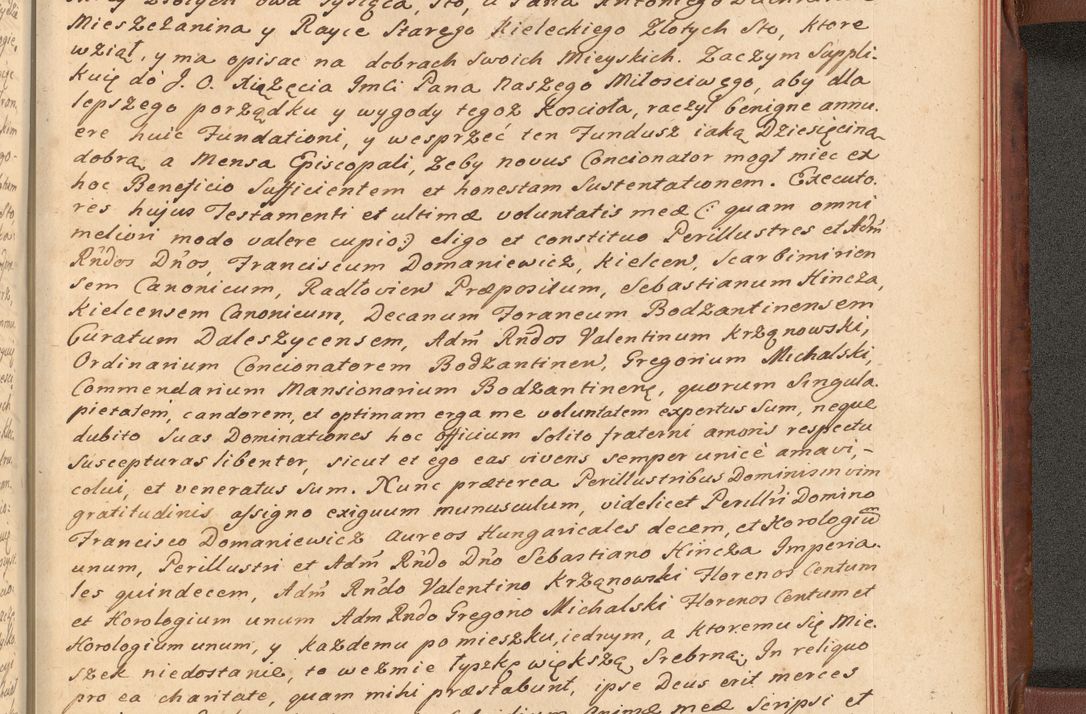 Mieszczanina y Rayce Starego Kieleckiego Złotych Sto, ktore
wziął, y ma opisac na dobrach swoich Mieyskich. Zaczym Suppli-
kuię do J. O. Xiążęcia Imci Pana Naszego Miłosciwego, aby dla
lepszego porządku y wygody tegoż Koscioła, raczył benigne annu
ere huic Fundationi, y wesprzeć ten Fundusz iaką Dziesięciną
dobrą, a Mensa Episcopali, żeby novus Concionator mogł miec ex
hoc Beneficio Sufficientem et honestam Sustentationem. Executo.
res hujus Testamenti et ultimæ voluntatis meæ (: quam omni
meliori modo valere cupio:) eligo et constituo Perillustres et Adm̃
Rńdos Dńos, Franciscum Domaniewicz, Kielcen, Scarbimirien
sem Canonicum, Radłovien Præpositum, Sebastianum Kincza,
Kielcensem Canonicum, Decanum Foraneum Bodzantinensem
Curatum Daleszycensem, Adm̃ Rńdos Valentinum Krząnowski,
Ordinarium Concionatorem Bodzantinen, Gregorium Michalski,
Commendarium Mansionarium Bodzantinenę, quorum Singula.
pietatem, candorem, et optimam erga me voluntatem expertus Sum, neque
dubito Suas Dominationes hoc officium Solito fraterni amoris respectu
Suscepturas libenter, sicut et ego eas vivens semper unicè amavi, -
colui, et veneratus Sum. Nunc præterea Perillustribus Dominis in vim
gratitudinis assigno exiguum munusculum, videlicet Perillři Domino
Francisco Domaniewicz Aureos Hungaricales decem, et Horologium
unum, Perillustri et Adm̃ Rńdo Dńo Sebastiano Kincza Imperia-
les quindecem, Adm̃ Rńdo Valentino Krząnowski Florenos Centum
et Horologium unum Adm Rńdo Gregorio Michalski Florenos Centum et
Horologium unum, y każdemu po mieszku iednym, a ktoremu się Mie.
szek niedostanie, to wezmie łyszkę większą Srebrną; In reliquo
pro ea charitate, quam mihi præstabunt, ipse Deus erit merces